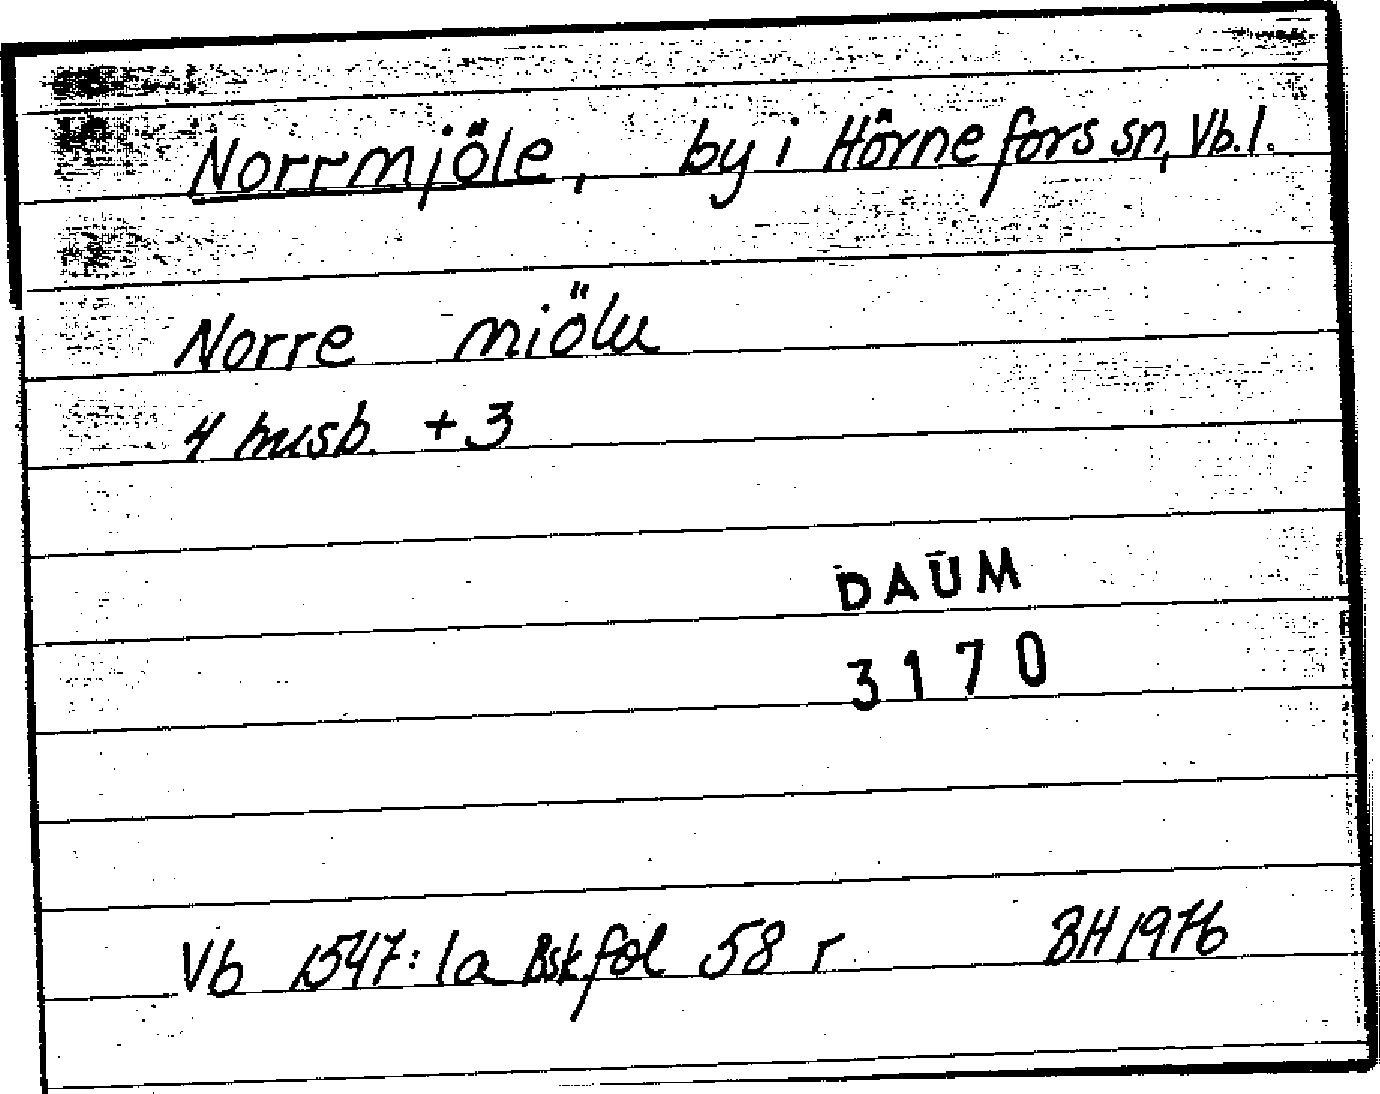 Norrmjöle, by i Hörnefors sn, Vb.l.
Norre miölu
4 husb. +3
DAUM
3170
Vb 1547:1a Bsk fol 58 r BH 1976